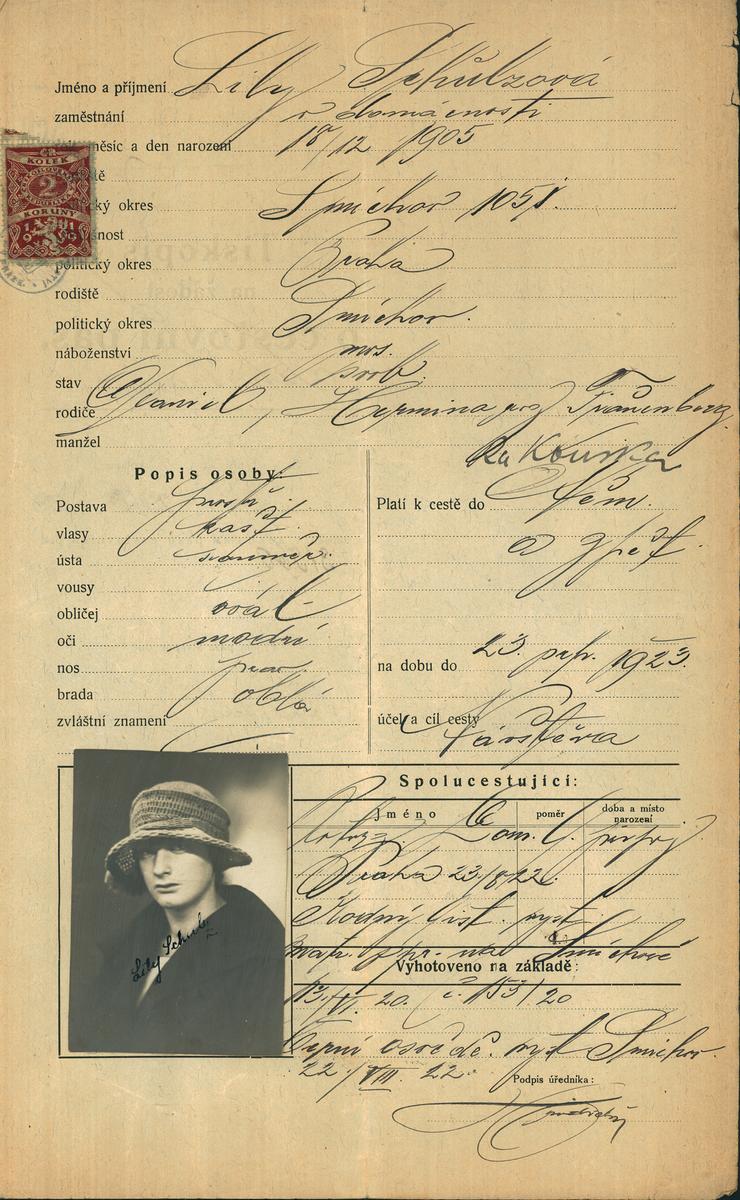 Jméno a příjmení Lily Schulzová
zaměstnání v domácnosti
měsíc a den narození 18/12 1905
okres Smíchov 1051.
politický okres Praha
rodiště
politický okres Smíchov.
náboženství mos.
stav svob.
rodiče Daniel, Hermina roz Trauenberg
manžel
Popis osoby:
Postava prostř.
vlasy kašt.
ústa souměr.
vousy
obličej ovál
oči modré
nos prav
brada oblá
zvláštní znamení
Platí k cestě do Něm.
a zpět.
na dobu do 23. 1923.
účel a cíl cesty Návštěva
KOLEK
2
KORUNY
1919
Lily Schulz
Spolucestující:
Jméno poměr doba a místo narození
Praha 23/8 22.
Rodný list vyst
Smíchově
Vyhotoveno na základě:
13/VI. 20. č. 153/20
osvědč. vyst Smíchov.
22/VIII. 22.
Podpis úředníka: